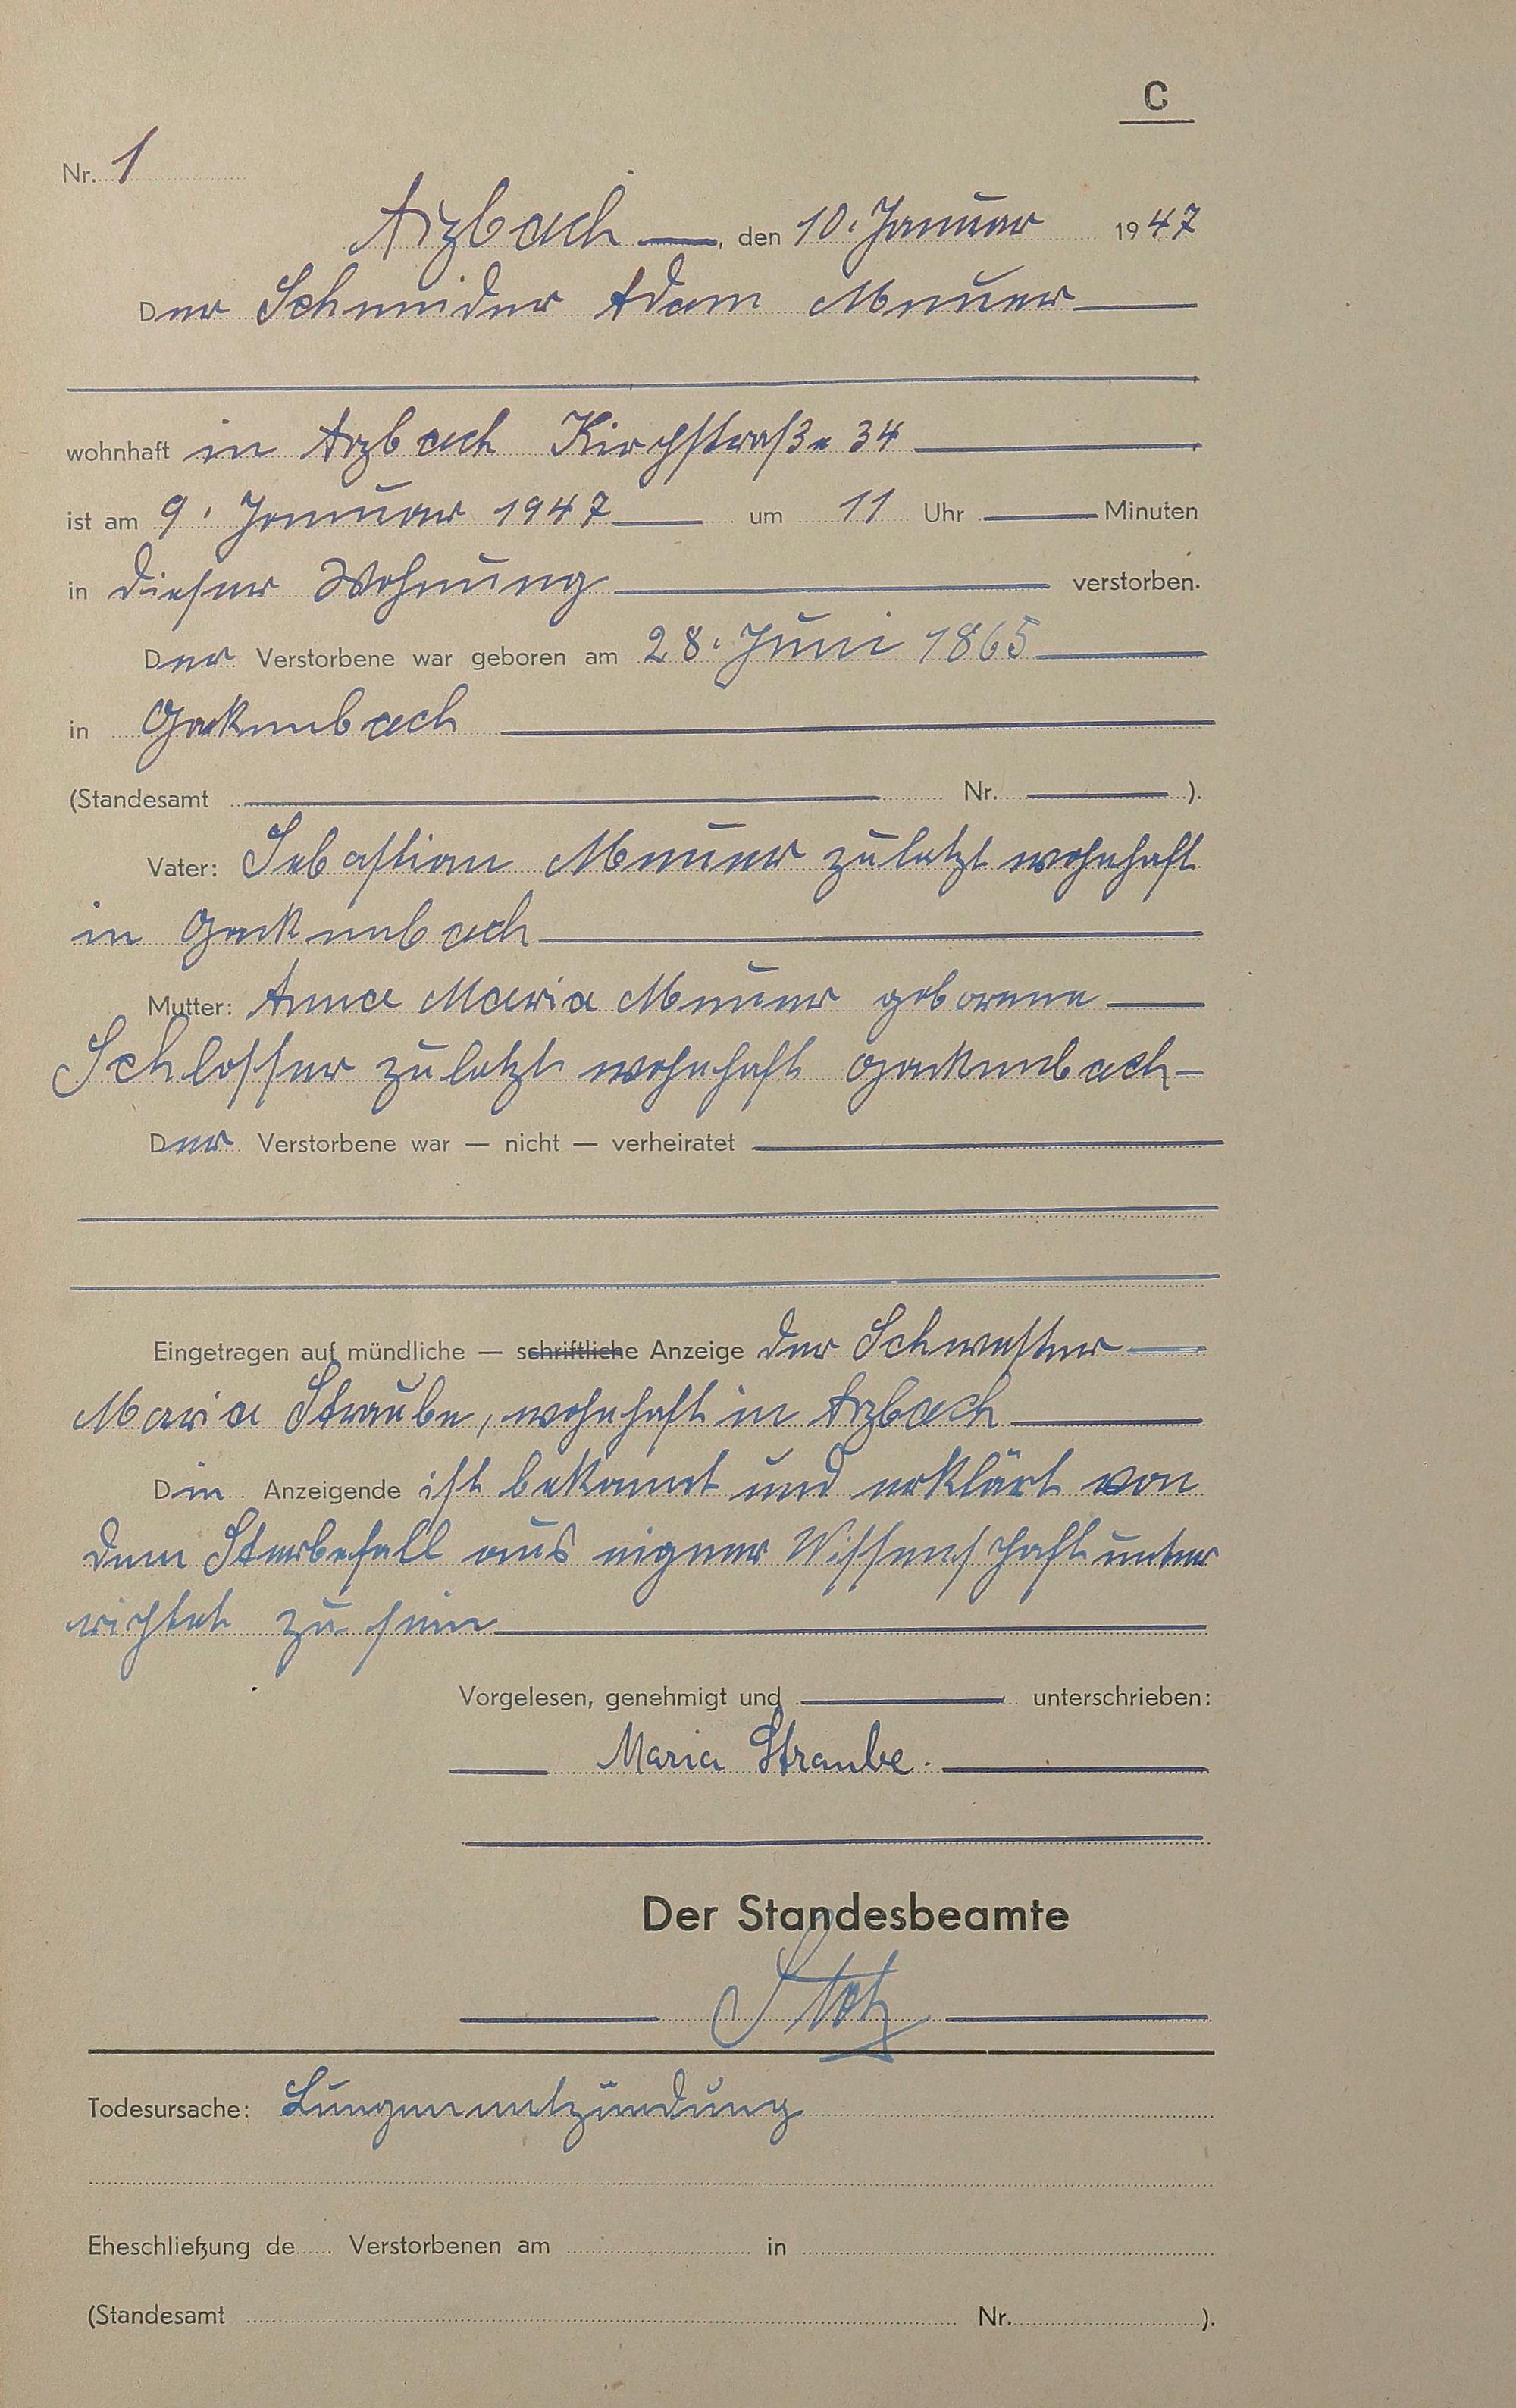 C
Nr. 1
Arzbach —, den 10. Januar 1947
Der Schneider Adam Meuer
wohnhaft in Arzbach Kirchstraße 34
ist am 9. Januar 1947 um 11 Uhr — Minuten
in dieser Wohnung verstorben.
Der Verstorbene war geboren am 28. Juni 1865
in Gackenbach
(Standesamt — Nr. — ).
Vater: Sebastian Meuer zuletzt wohnhaft
in Gackenbach
Mutter: Anna Maria Meuer geborene
Schlosser zuletzt wohnhaft Gackenbach
Der Verstorbene war — nicht — verheiratet
Eingetragen auf mündliche — schriftliche Anzeige der Schwester
Maria Straube, wohnhaft in Arzbach
Die Anzeigende ist bekannt und erklärt von
dem Sterbefall aus eigner Wissenschaft unter
richtet zu sein
Vorgelesen, genehmigt und — unterschrieben:
Maria Straube.
Der Standesbeamte
Todesursache: Lungenentzündung
Eheschließung de..... Verstorbenen am ..... in .....
(Standesamt ..... Nr. ..... ).